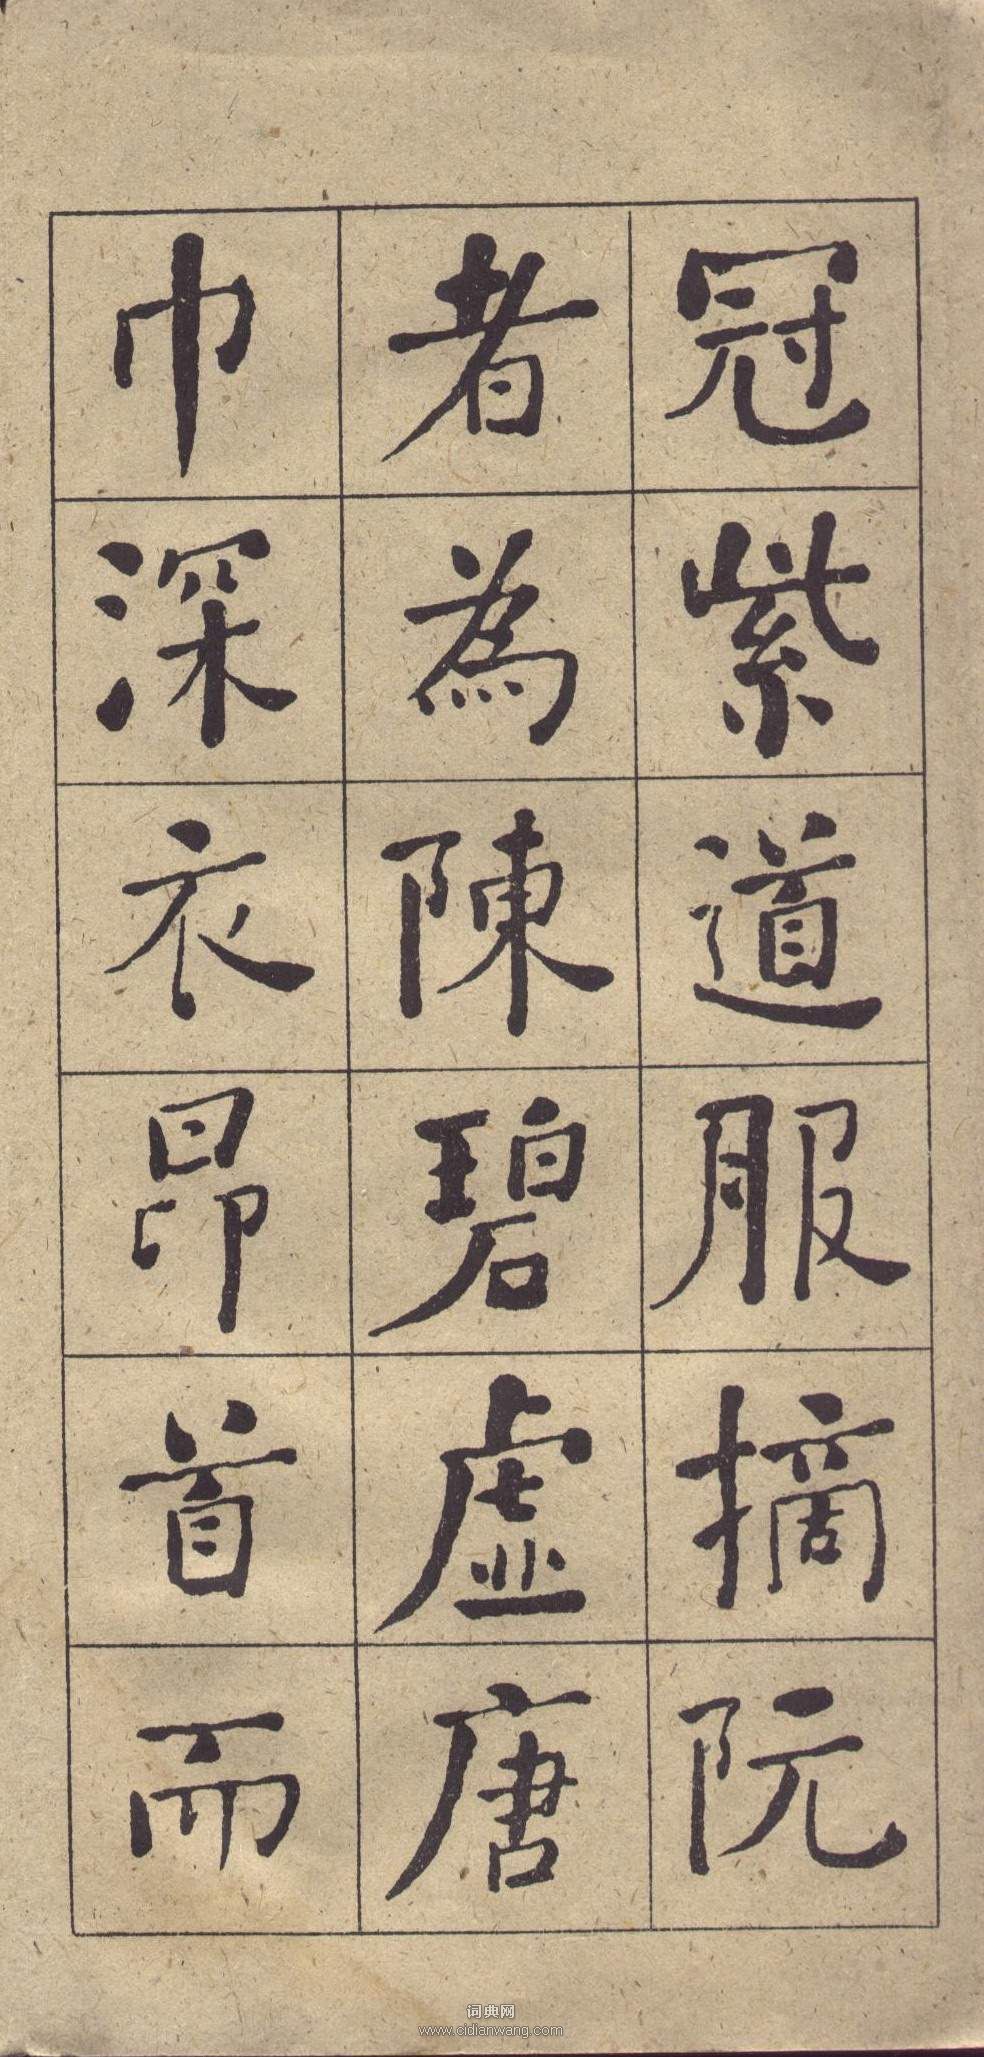 冠紫道服摘阮
者為陳碧虛唐
巾深衣昂首而
词典网
www.cidianwang.com